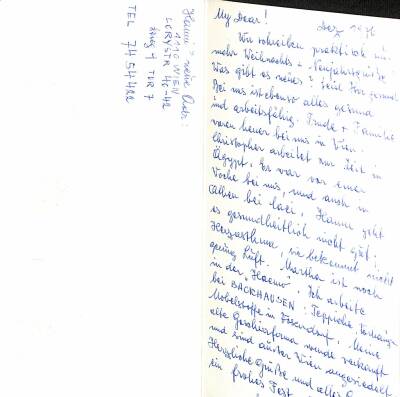 Hanni's neue Adr.:
1110 WIEN
LORYSTR 40-42
Stieg 1 TÜR 7
TEL 74 54422
My Dear!
Dez 1976
Wir schreiben praktisch nur
mehr Weihnachts + Neujahrsgrüße.
Was gibt es neues? Seid Ihr gesund
Bei uns ist ebenso alles gesund
und arbeitsfähig. Trude + Familie
waren heuer bei uns in Wien.
Christopher arbeitet zur Zeit in
Ägypt. Er war vor einer
Woche bei uns, und auch in
Athen bei Laci. Hanna geht
es gesundheitlich nicht gut:
Herzasthma, sie bekommt nicht
genug Luft. Martha ist noch
in der "Haemo". Ich arbeite
bei BACKHAUSEN: Teppiche, Vorhänge
Möbelstoffe in Vösendorf. Meine
alte Geschäftsfirma wurde verkauft
und sind aus der Wien angesiedelt
Herzliche Grüße und alles
ein frohes Fest